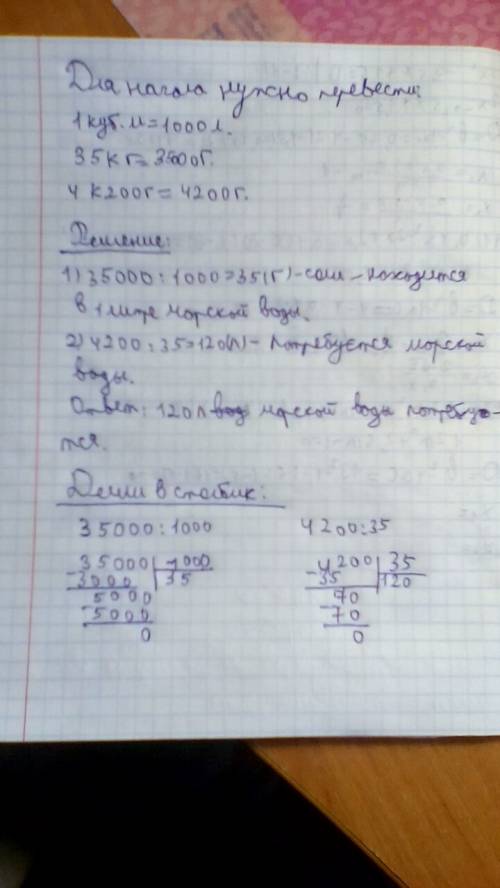 Для начала нужно перевести:
1 куб. м = 1000 л.
35 кг = 35000г.
4 к200г = 4200г.
Решение:
1) 35000 : 1000 = 35(г) - соли - находится
в 1 литре морской воды.
2) 4200 : 35 = 120(л) - потребуется морской
воды.
Ответ: 120 л морской воды потребуе-
тся.
Делим в столбик:
35000 : 1000 4200 : 35
35000 1000 4200 35
-3000 35 -35 120
5000 70
-5000 -70
0 0